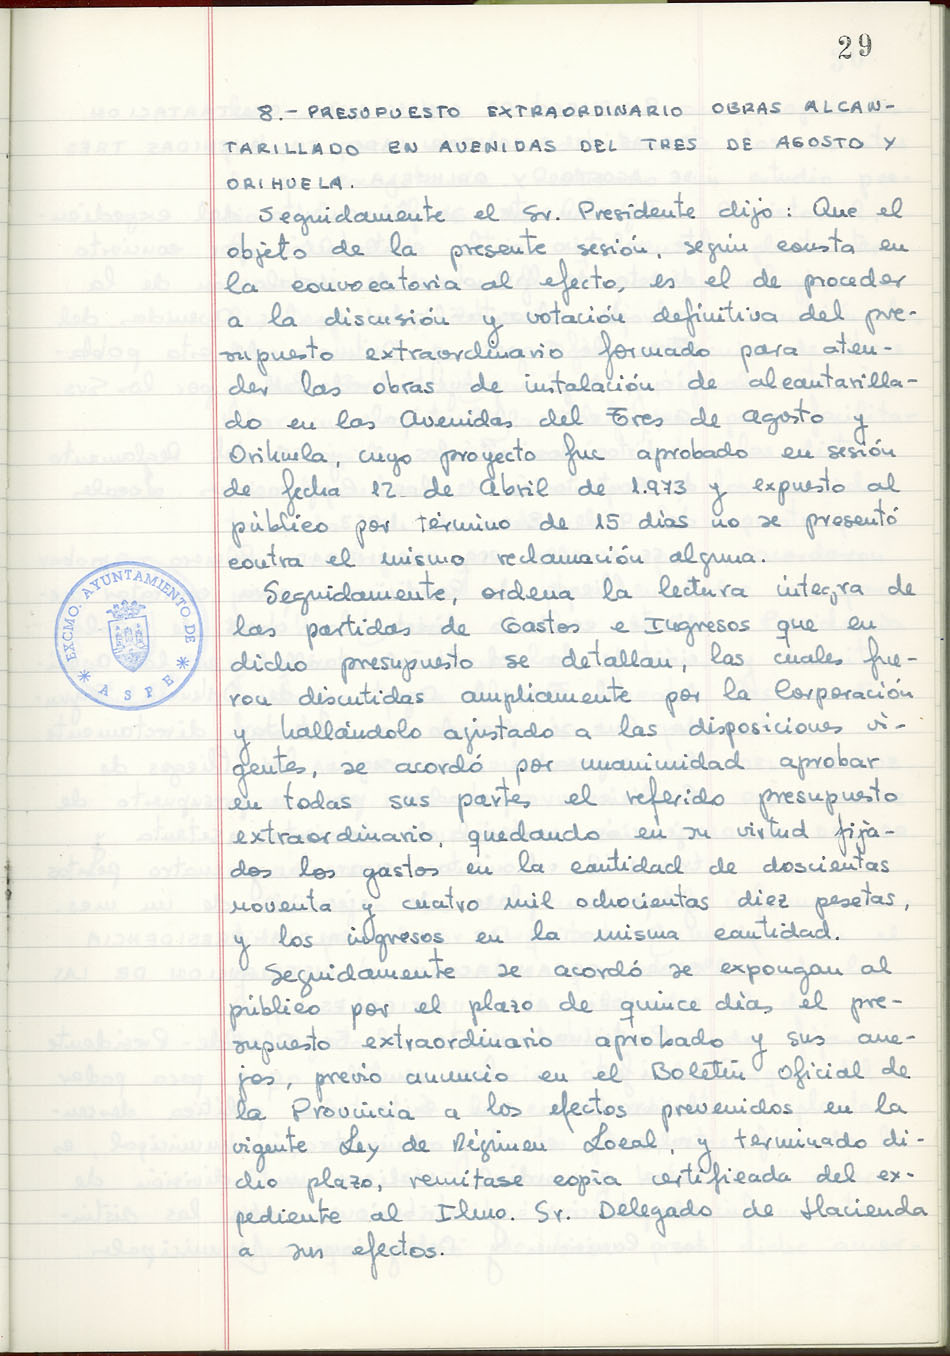 29
8.- PRESUPUESTO EXTRAORDINARIO OBRAS ALCAN-
TARILLADO EN AVENIDAS DEL TRES DE AGOSTO Y
ORIHUELA.
Seguidamente el Sr. Presidente dijo: Que el
objeto de la presente sesión, según consta en
la convocatoria al efecto, es el de proceder
a la discusión y votación definitiva del pre-
supuesto extraordinario formado para aten-
der las obras de instalación de alcantarilla-
do en las Avenidas del Tres de Agosto y
Orihuela, cuyo proyecto fue aprobado en sesión
de fecha 12 de Abril de 1.973 y expuesto al
público por término de 15 días no se presentó
contra el mismo reclamación alguna.
Seguidamente, ordena la lectura íntegra de
las partidas de Gastos e Ingresos que en
dicho presupuesto se detallan, las cuales fue-
ron discutidas ampliamente por la Corporación
y hallándolo ajustado a las disposiciones vi-
gentes, se acordó por unanimidad aprobar
en todas sus partes el referido presupuesto
extraordinario, quedando en su virtud fija-
dos los gastos en la cantidad de doscientas
noventa y cuatro mil ochocientas diez pesetas,
y los ingresos en la misma cantidad.
Seguidamente se acordó se expongan al
público por el plazo de quince días el pre-
supuesto extraordinario aprobado y sus ane-
jos, previo anuncio en el Boletín Oficial de
la Provincia a los efectos prevenidos en la
vigente Ley de Régimen Local, y terminado di-
cho plazo, remítase copia certificada del ex-
pediente al Ilmo. Sr. Delegado de Hacienda
a sus efectos.
EXCMO. AYUNTAMIENTO DE
* ASPE *